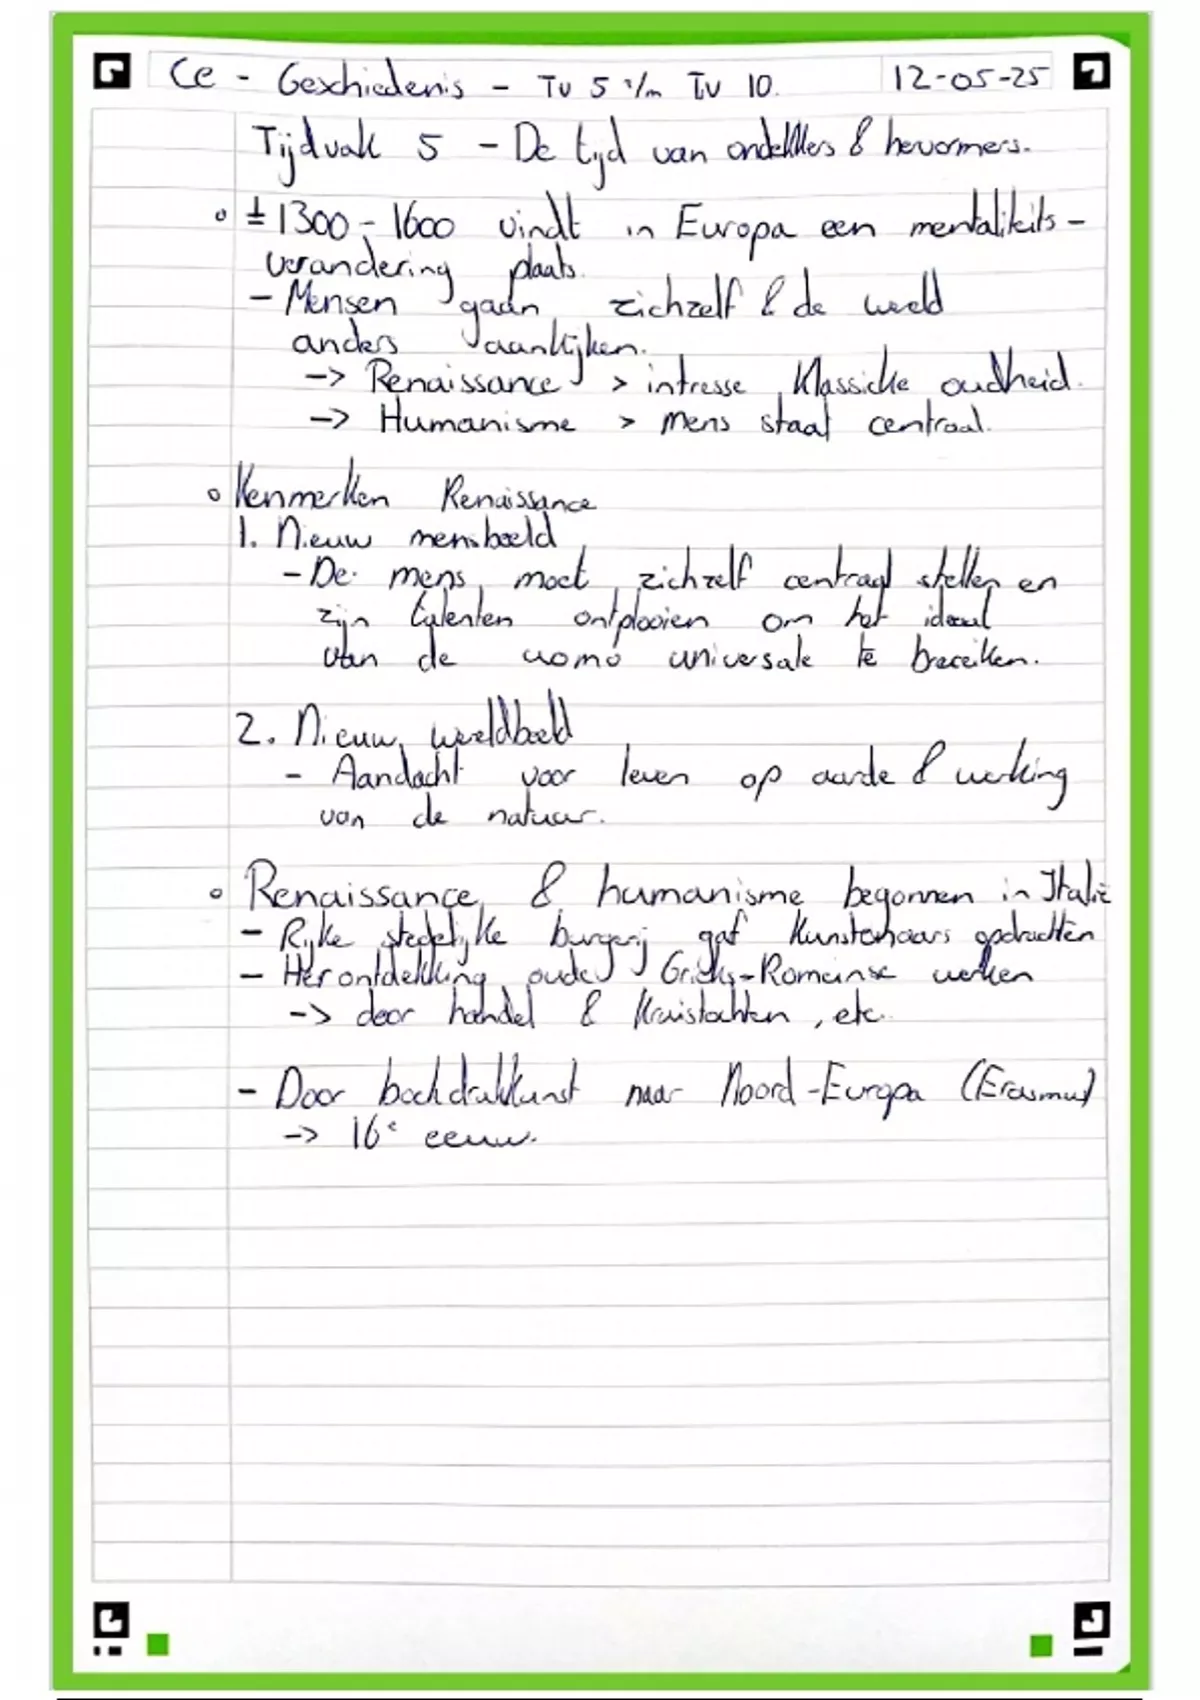 Ce - Geschiedenis - TV 5 t/m TV 10.
12-05-25
Tijdvak 5 - De tijd van ontdekkers & hervormers.
° ± 1300 - 1600 vindt in Europa een mentaliteits-
verandering plaats.
- Mensen gaan zichzelf & de wereld
anders aankijken.
-> Renaissance > intresse klassieke oudheid.
-> Humanisme > mens staat centraal.
° Kenmerken Renaissance
1. Nieuw mensbeeld
- De mens moet zichzelf centraal stellen en
zijn talenten ontplooien om het ideaal
van de uomo universale te bereiken.
2. Nieuw wereldbeeld
- Aandacht voor leven op aarde & werking
van de natuur.
° Renaissance & humanisme begonnen in Italië
- Rijke stedelijke burgerij gaf kunstenaars opdrachten
- Herontdekking oude Grieks-Romeinse werken
-> door handel & kruistochten, etc.
- Door boekdrukkunst naar Noord-Europa (Erasmus)
-> 16e eeuw.